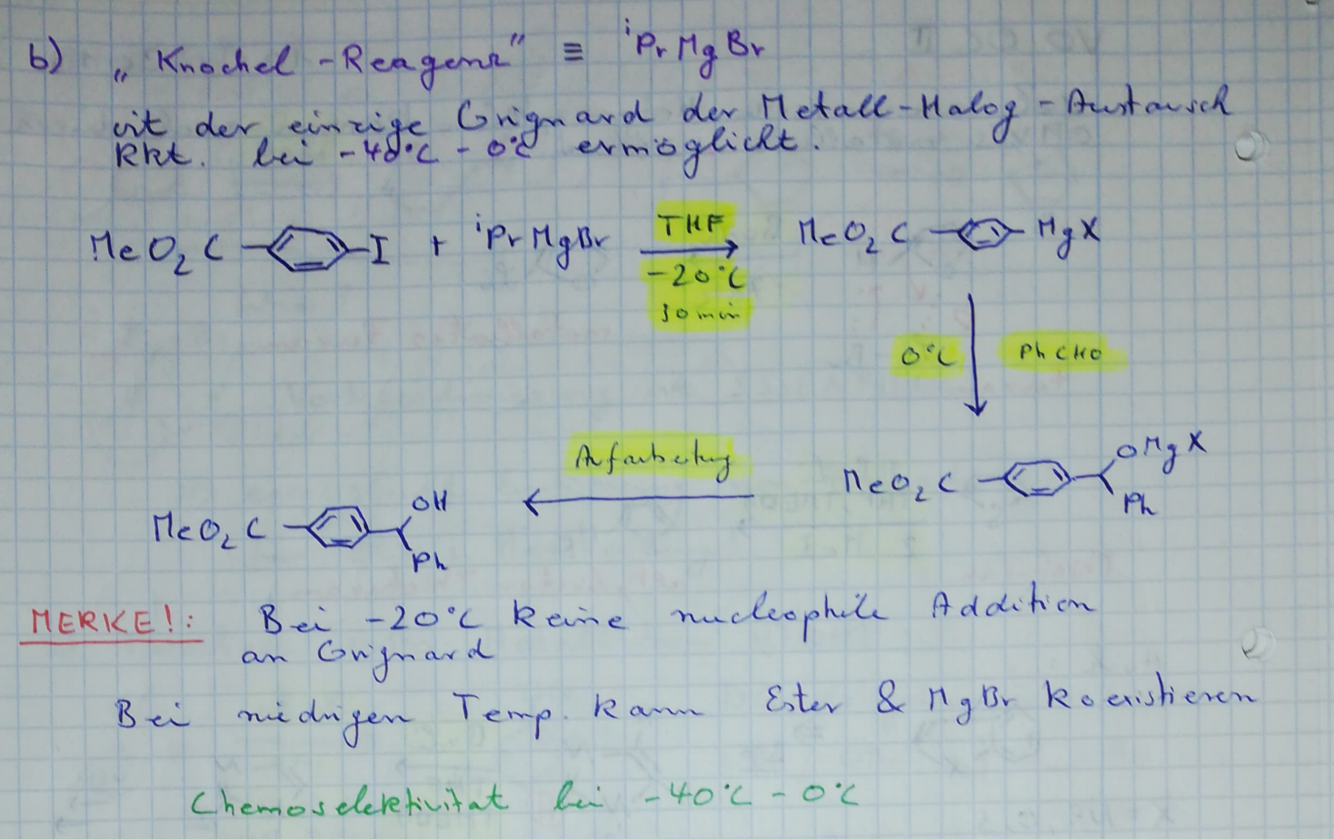 b) „Knochel-Reagenz" ≡ iPrMgBr
ist der einzige Grignard der Metall-Halog-Austausch
Rkt. bei -40°C - 0°C ermöglicht.
MeO2C I + iPrMgBr THF -20°C 30 min MeO2C MgX
0°C PhCHO
MeO2C OMgX Ph
Aufarbeitung
MeO2C OH Ph
MERKE!: Bei -20°C keine nucleophile Addition
an Grignard
Bei niedrigen Temp. kann Ester & MgBr koexistieren
Chemoselektivität bei -40°C - 0°C